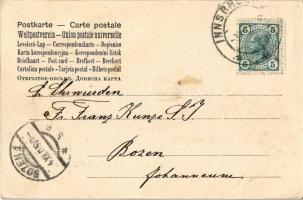 Postkarte — Carte postale
Weltpostverein — Union postale universelle
Levelező-Lap — Correspondenzkarte — Dopisnice
Karta korespondencyjna — Korespondenční lístek
Briefkaart — Post card — Brefkort — Brevkort
Cartolina postale — Tarjeta postal — Bilhete postal
Открытое письмо. Дописна карта
INNSBRUCK
5 5
5 5
S. Ehrwürden
Fr. Franz Kunze S.J
Bozen
Johanneum
BOZEN